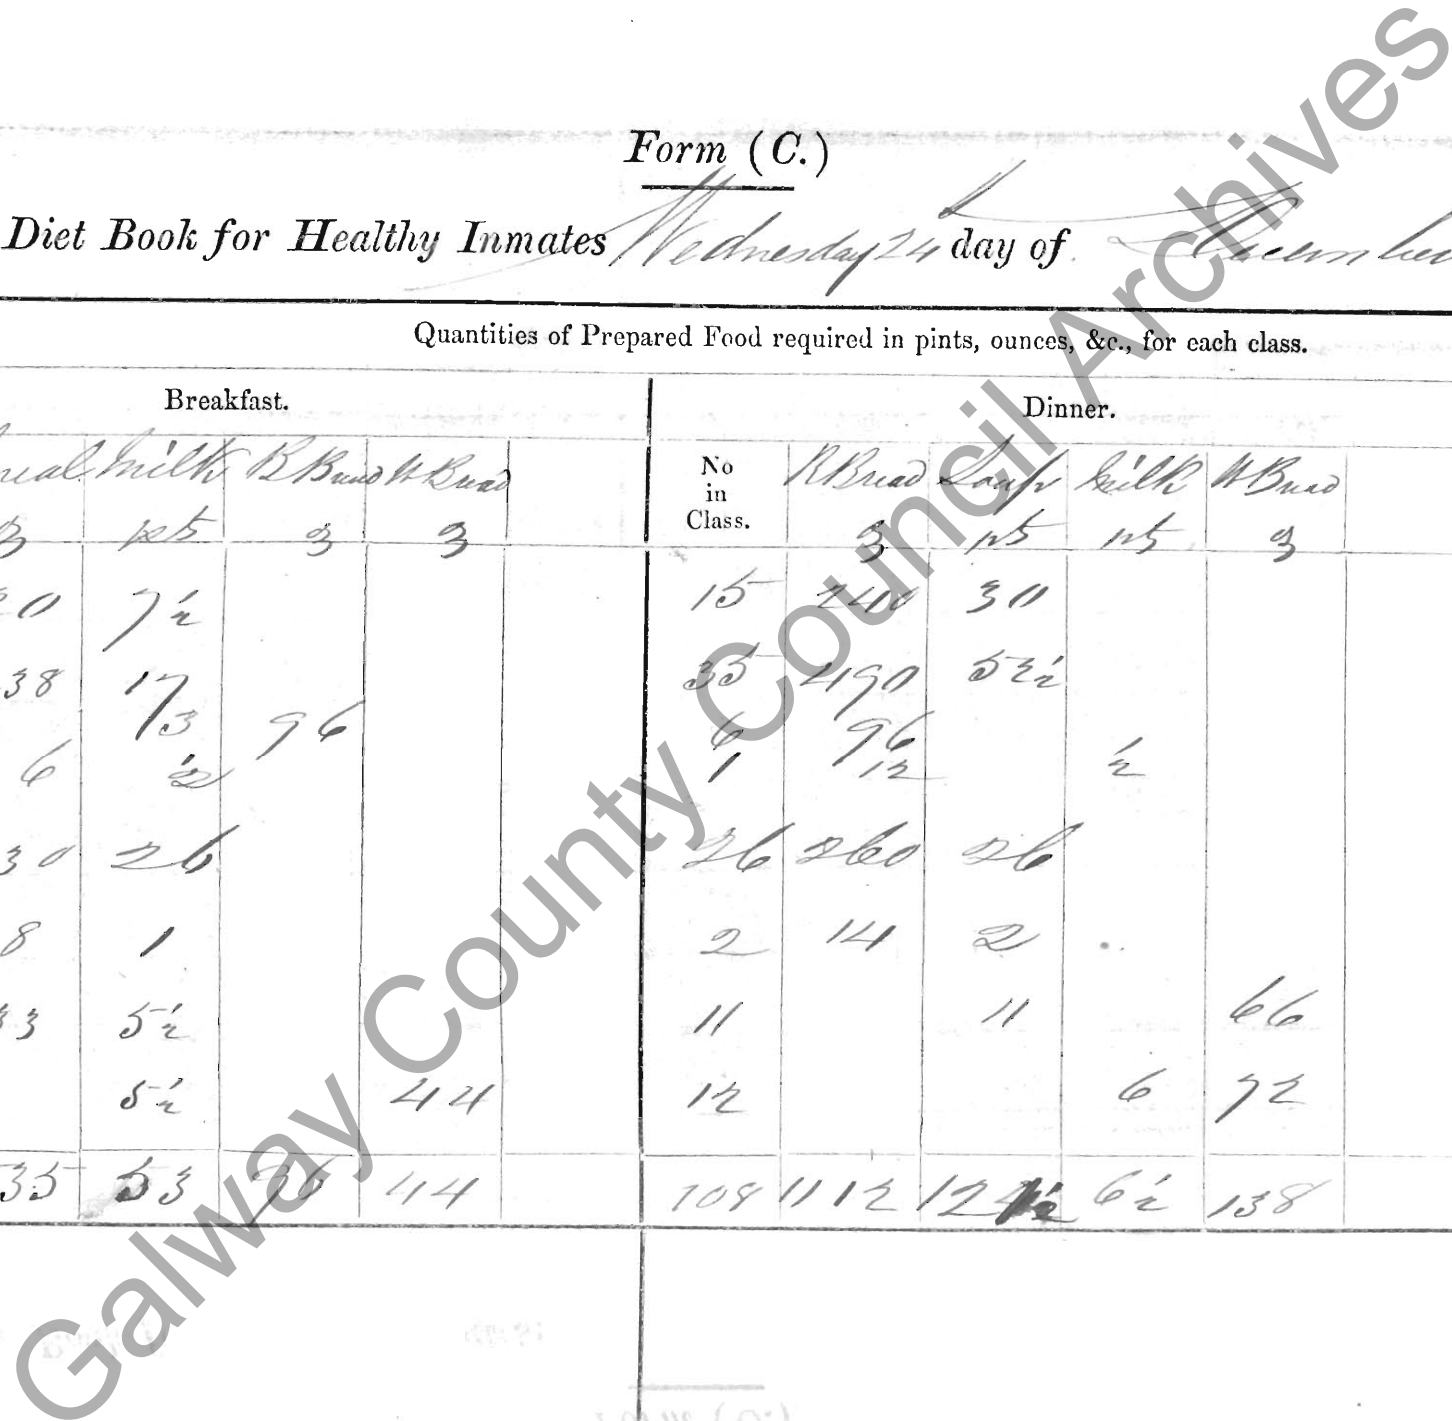 Form (C.)
Diet Book for Healthy Inmates Wednesday 24 day of December
Quantities of Prepared Food required in pints, ounces, &c., for each class.
Breakfast. Dinner.
Milk B Bread W Bread No in Class. B Bread Soup Milk W Bread
3 pts 3 3 3 pts pts 3
20 7½ 15 240 30
38 17 35 490 52½
3 96 6 96
6 ½ 1 12 ½
30 26 26 260 26
8 1 2 14 2
33 5½ 11 11 66
5½ 44 12 6 72
35 53 96 44 108 1112 121½ 6½ 138
Galway County Council Archives